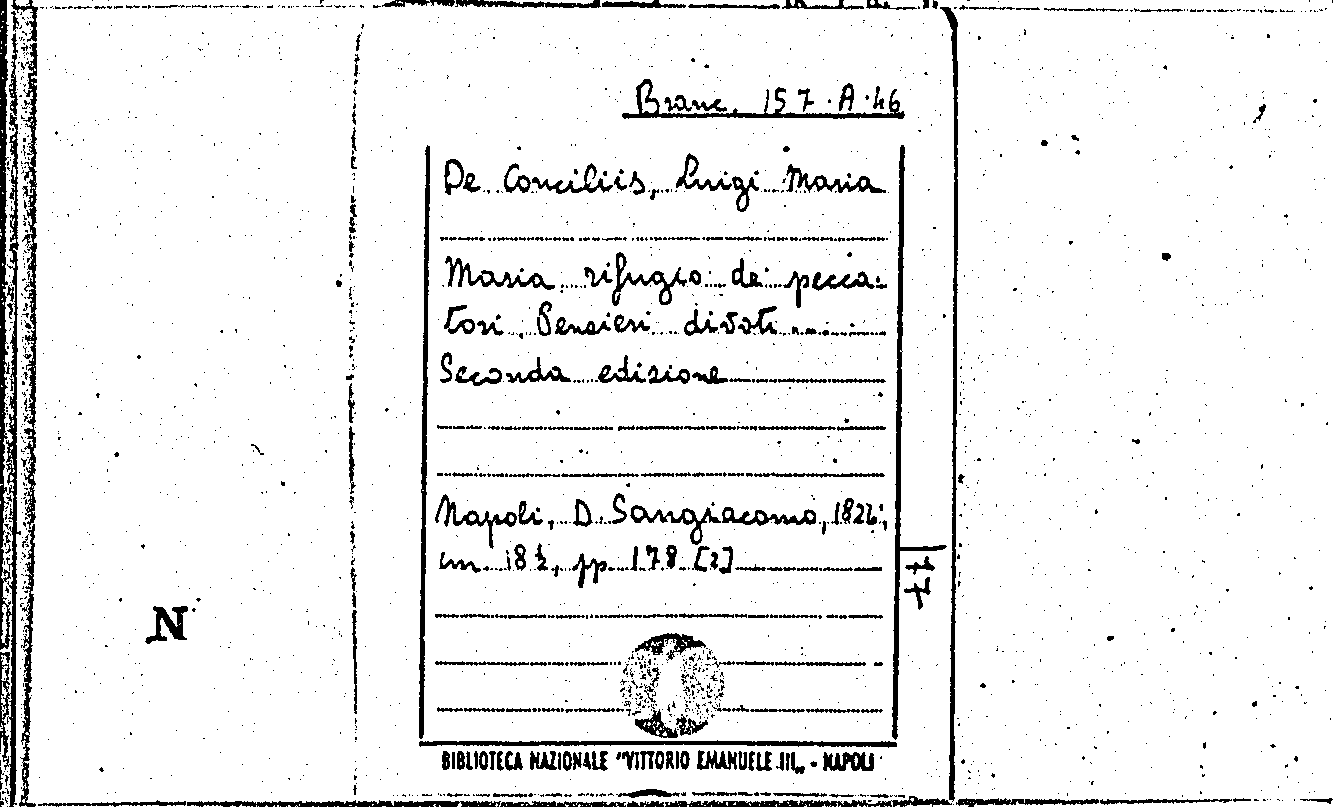 Branc. 157.A.46
De Conciliis, Luigi Maria
Maria rifugio de' pecca-
tori. Pensieri divoti .....
Seconda edizione
Napoli, D. Sangiacomo,
cm. 18½, pp. 178 [2]
77
N
BIBLIOTECA NAZIONALE "VITTORIO EMANUELE III„ - NAPOLI